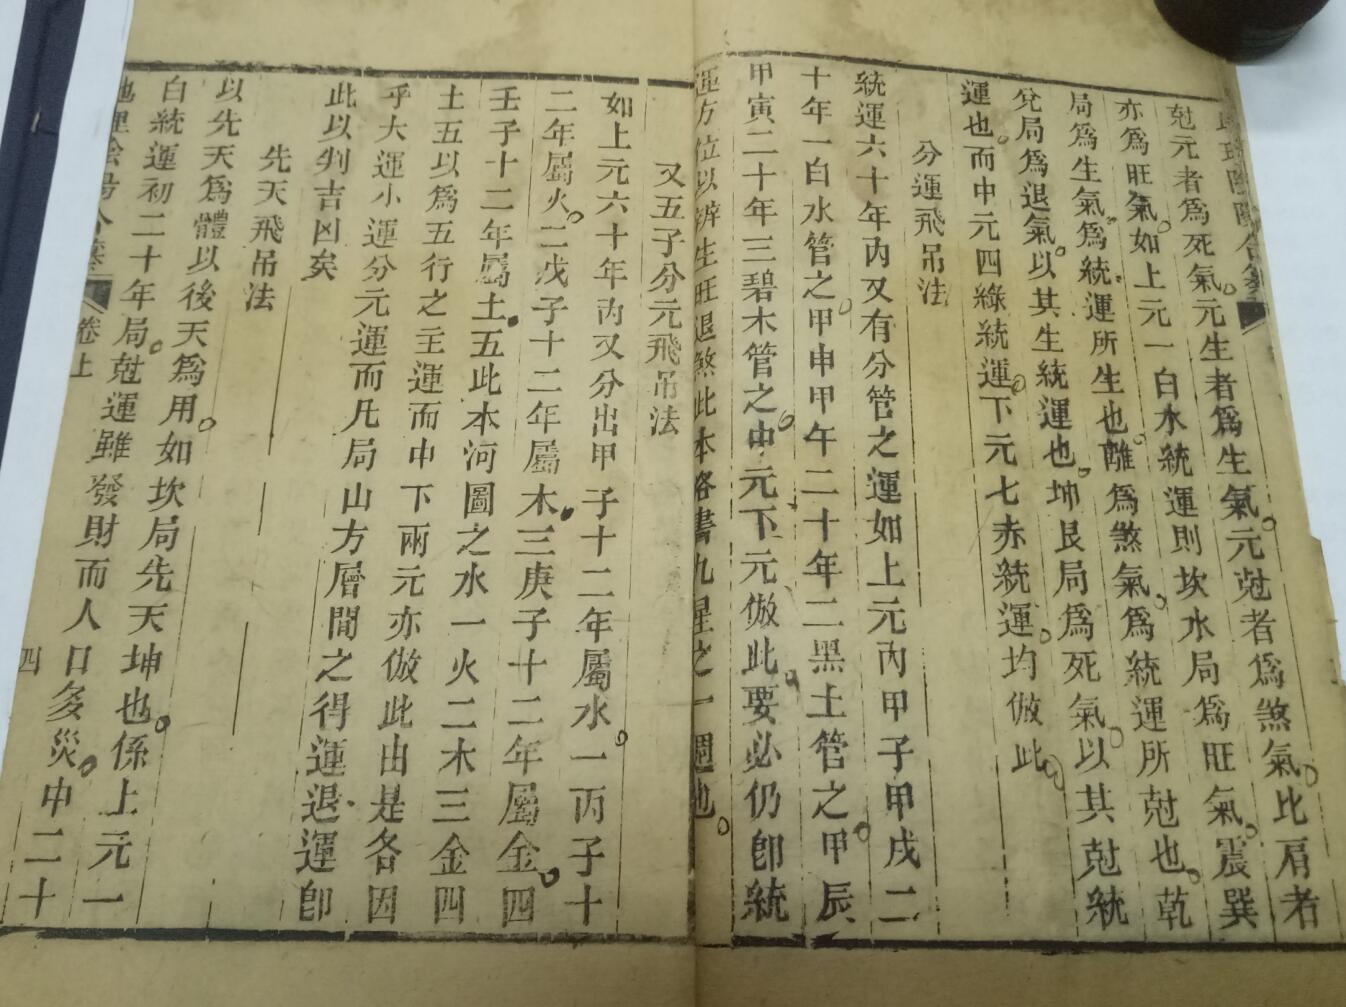 尅元者爲死氣元生者爲生氣元尅者爲煞氣比肩者
亦爲旺氣如上元一白水統運則坎水局爲旺氣震巽
局爲生氣爲統運所生也離爲煞氣爲統運所尅也乾
兌局爲退氣以其生統運也坤艮局爲死氣以其尅統
運也而中元四綠統運下元七赤統運均倣此
分運飛吊法
統運六十年內又有分管之運如上元內甲子甲戌二
十年一白水管之甲申甲午二十年二黑土管之甲辰
甲寅二十年三碧木管之中元下元倣此要必仍卽統
運方位以辨生旺退煞此本洛書九星之一週也
又五子分元飛吊法
如上元六十年內又分出甲子十二年屬水一丙子十
二年屬火二戊子十二年屬木三庚子十二年屬金四
壬子十二年屬土五此本河圖之水一火二木三金四
土五以爲五行之主運而中下兩元亦倣此由是各因
乎大運小運分元運而凡局山方層間之得運退運卽
此以判吉凶矣
先天飛吊法
以先天爲體以後天爲用如坎局先天坤也係上元一
白統運初二十年局尅運雖發財而人口多災中二十
卷上
四